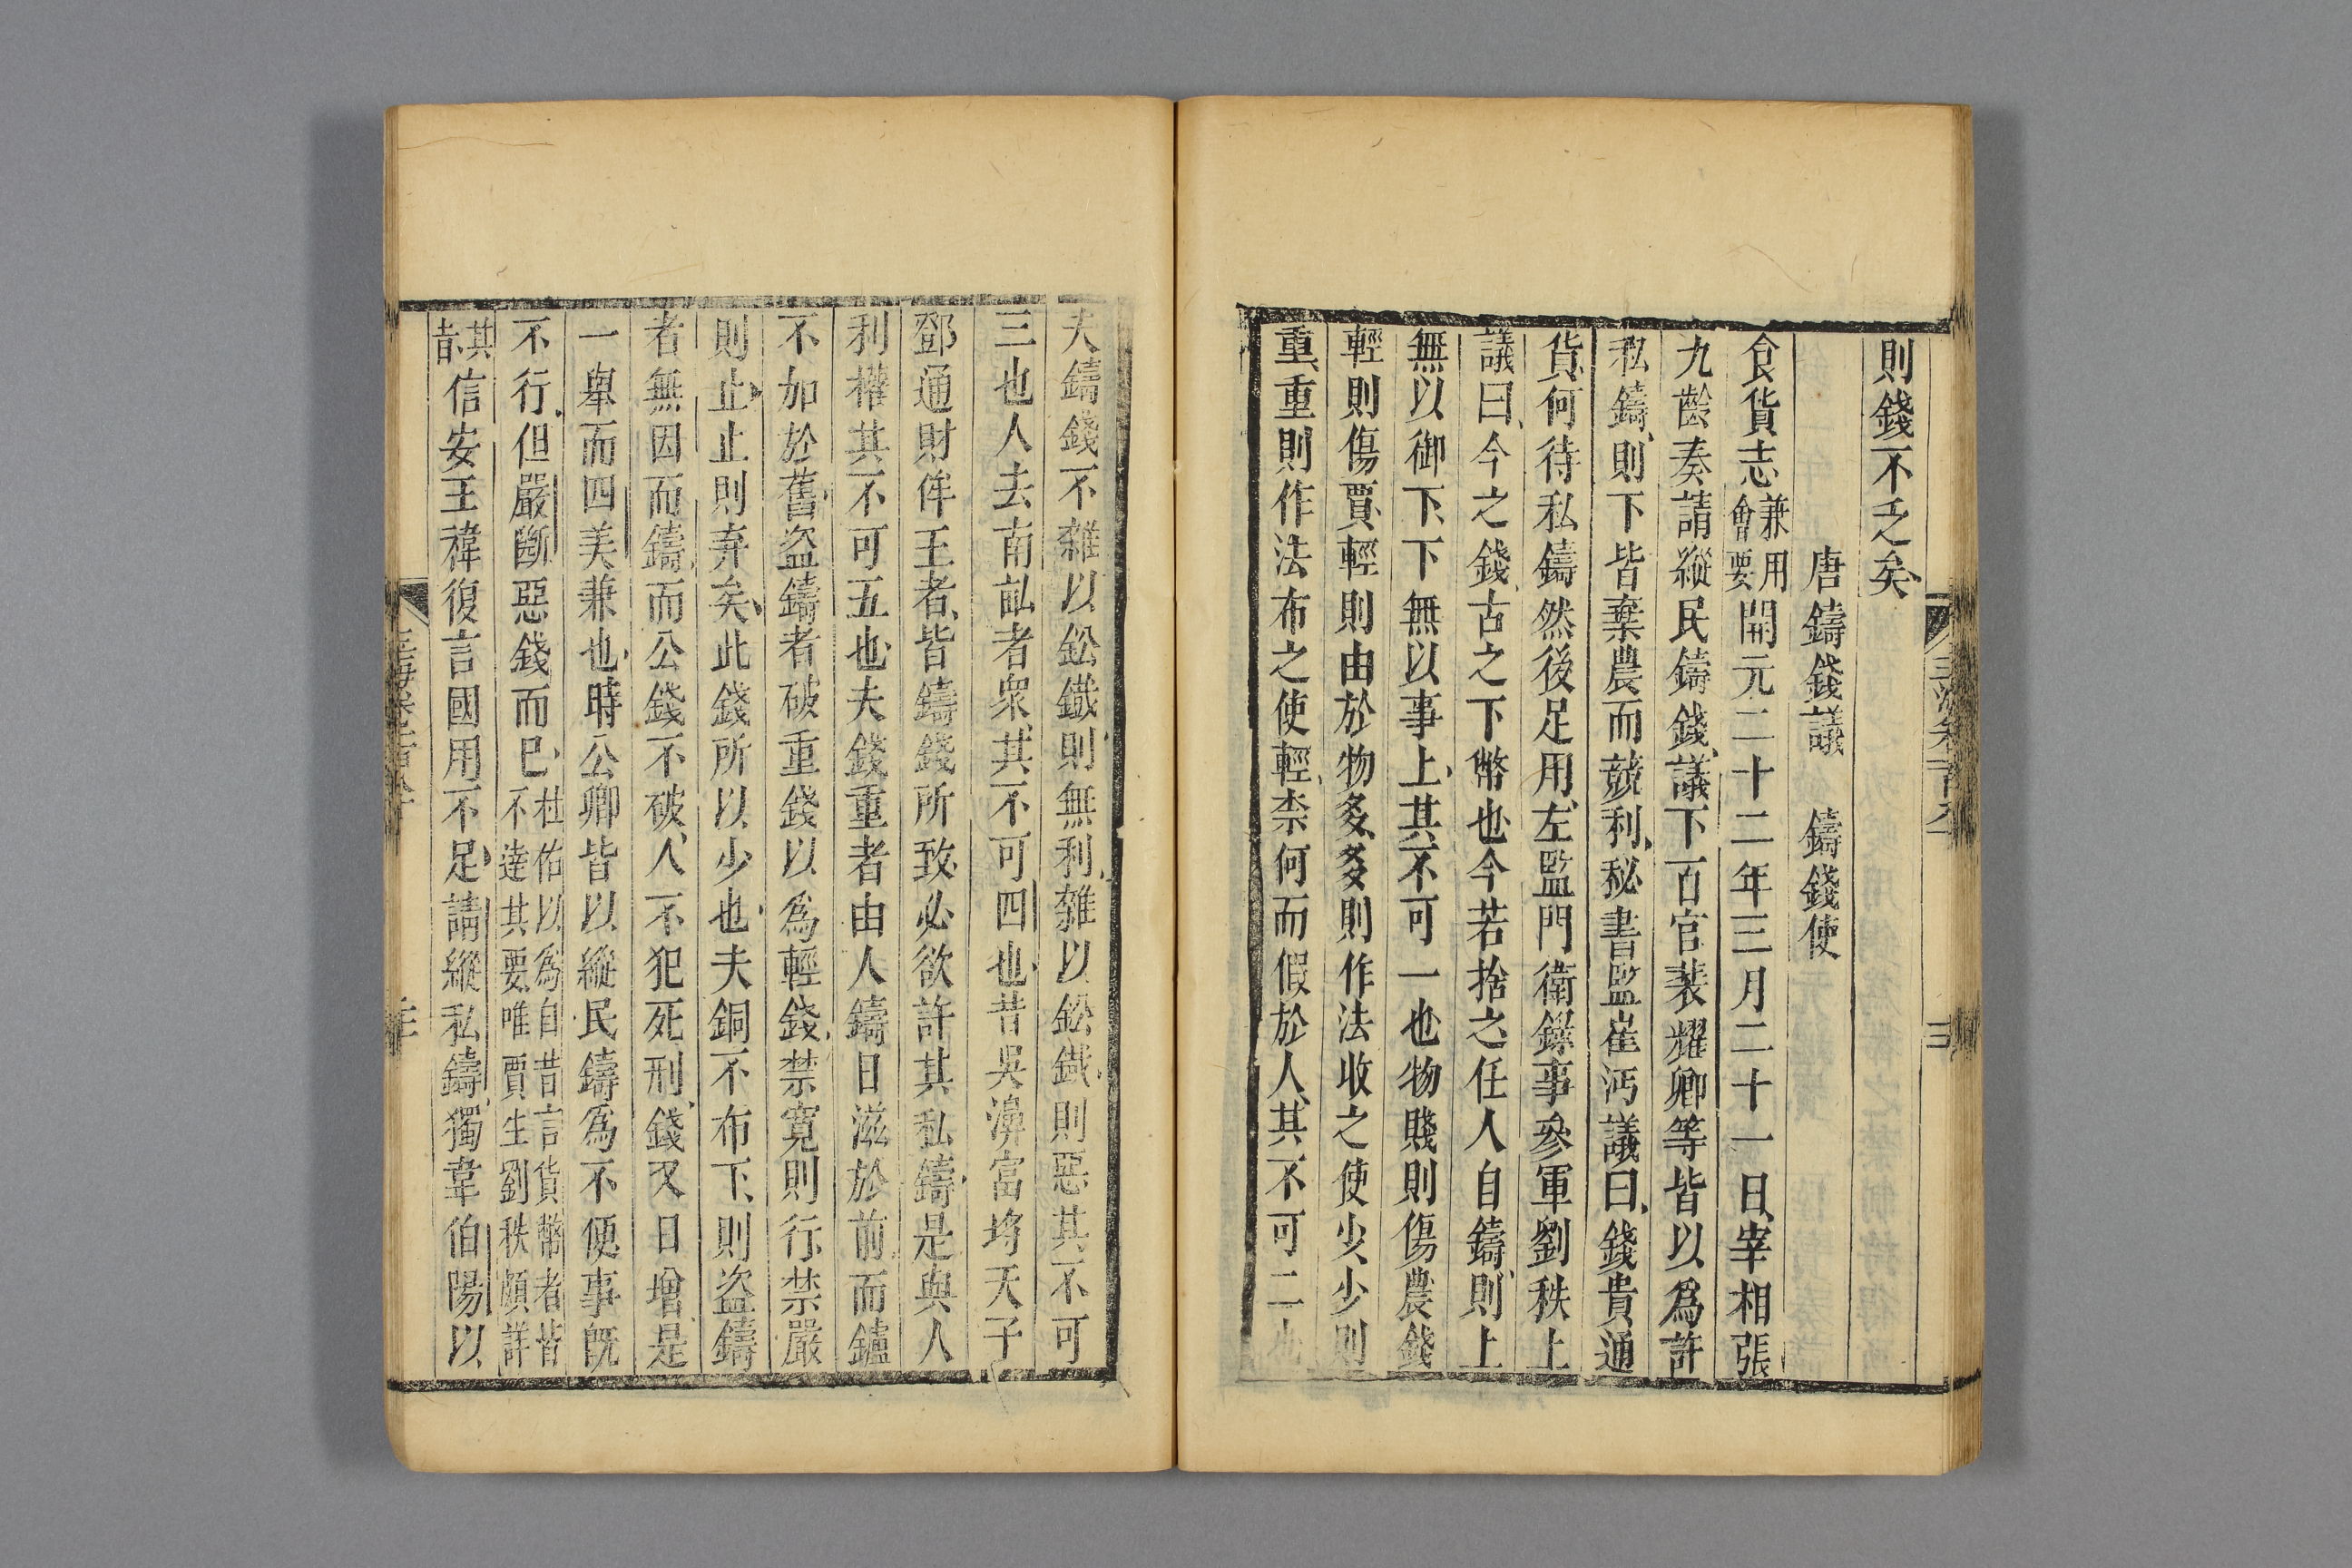 則錢不乏矣
唐鑄錢議　鑄錢使
食貨志兼用會要開元二十二年三月二十一日宰相張
九齡奏請縱民鑄錢議下百官裴耀卿等皆以爲許
私鑄則下皆棄農而競利秘書監崔沔議曰錢貴通
貨何待私鑄然後足用左監門衛錄事參軍劉秩上
議曰今之錢古之下幣也今若捨之任人自鑄則上
無以御下下無以事上其不可一也物賤則傷農錢
輕則傷賈輕則由於物多多則作法收之使少少則
重重則作法布之使輕柰何而假於人其不可二也
夫鑄錢不雜以鈆鐵則無利雜以鈆鐵則惡其不可
三也人去南畝者衆其不可四也昔吳濞富埓天子
鄧通財侔王者皆鑄錢所致必欲許其私鑄是與人
利權其不可五也夫錢重者由人鑄日滋於前而鑪
不加於舊盜鑄者破重錢以爲輕錢禁寛則行禁嚴
則止止則弃矣此錢所以少也夫銅不布下則盜鑄
者無因而鑄而公錢不破人不犯死刑錢又日增是
一舉而四美兼也時公卿皆以縱民鑄爲不便事旣
不行但嚴斷惡錢而巳杜佑以爲自昔言貨幣者皆不達其要唯賈生劉秩頗詳
其㫖信安王褘復言國用不足請縱私鑄獨韋伯陽以